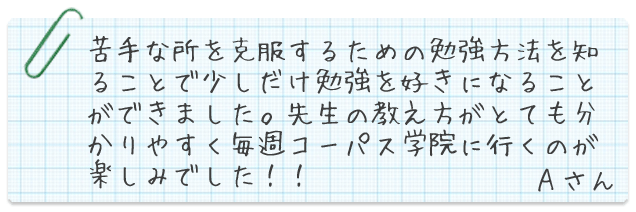 苦手な所を克服するための勉強方法を知
ることで少しだけ勉強を好きになること
ができました。先生の教え方がとても分
かりやすく毎週コーパス学院に行くのが
楽しみでした！！
Aさん